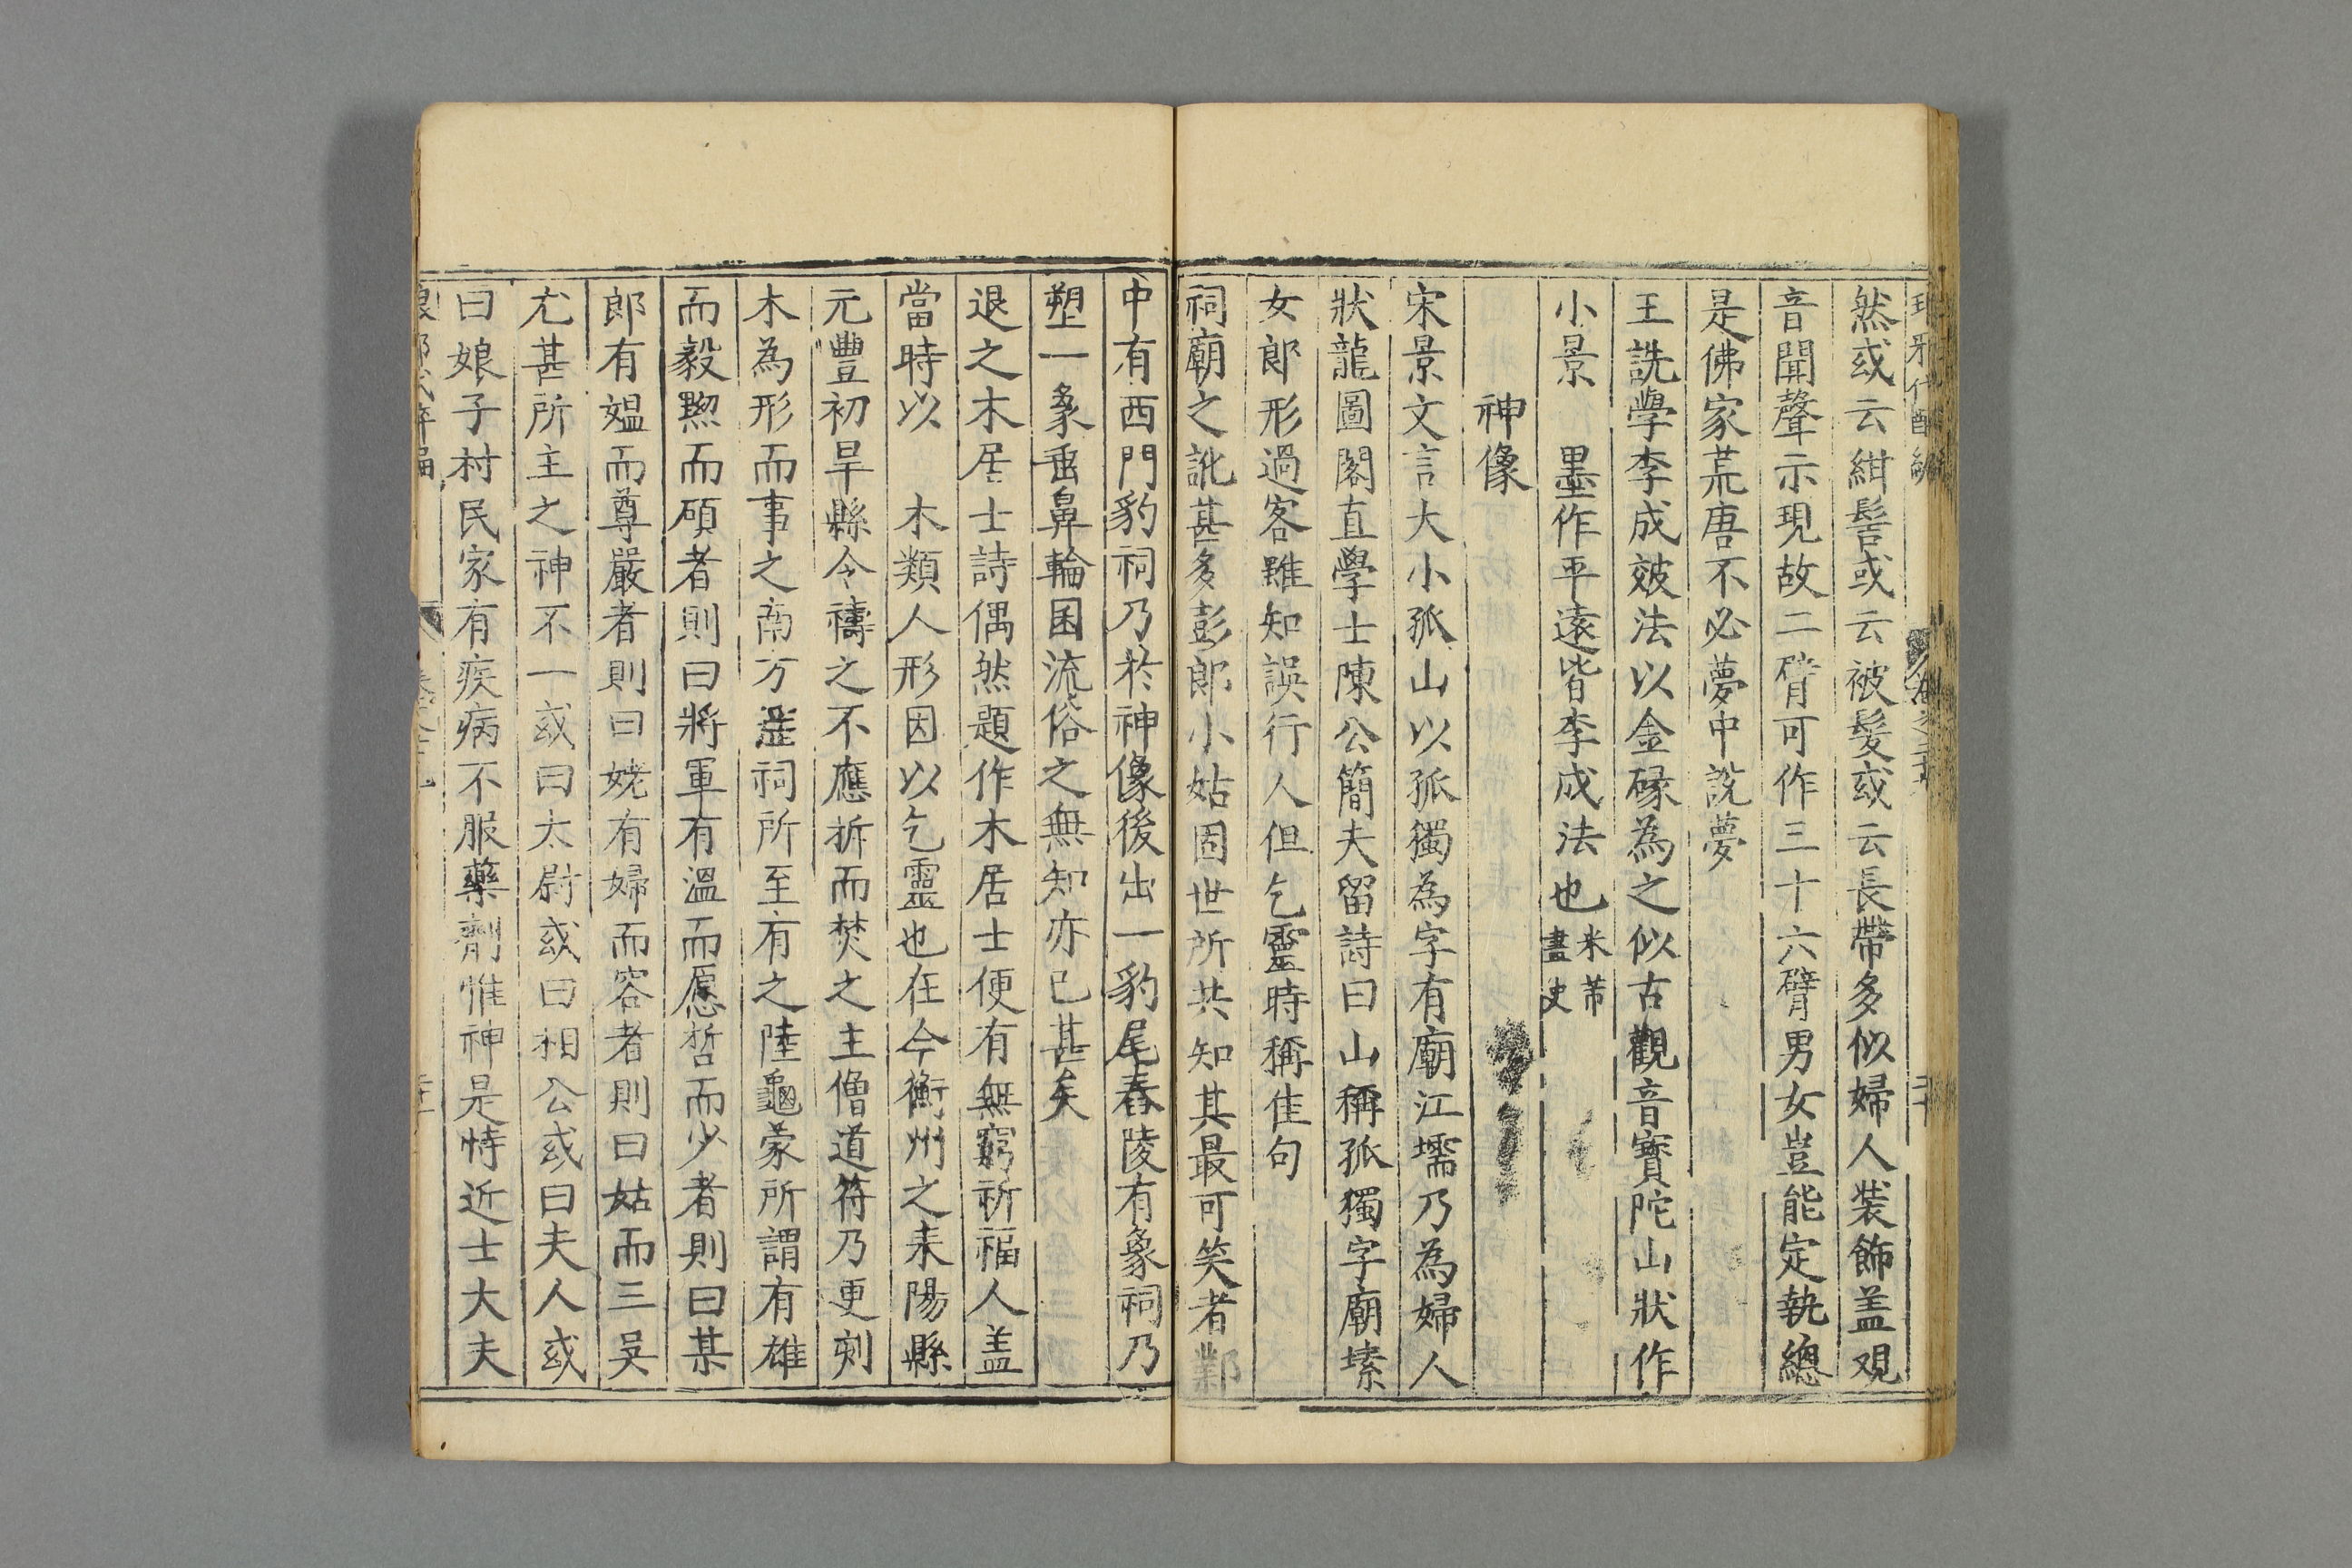 然或云紺髻或云被髮或云長帶多似婦人裝飾盖观
音聞聲示現故二臂可作三十六臂男女豈能定執總
是佛家荒唐不必夢中説夢
王詵學李成皴法以金碌為之似古觀音寳陀山狀作
小景 墨作平遠皆李成法也米芾畫史
神像
宋景文言大小孤山以孤獨為字有廟江壖乃為婦人
狀龍圖閣直學士陳公簡夫留詩曰山稱孤獨字廟塐
女郎形過客雖知誤行人但乞靈時稱佳句
祠廟之訛甚多彭郎小姑固世所共知其最可笑者鄴
中有西門豹祠乃於神像後出一豹尾舂陵有象祠乃
塑一象垂鼻輪囷流俗之無知亦已甚矣
退之木居士詩偶然題作木居士便有無窮祈福人盖
當時以 木類人形因以乞靈也在今衡州之耒陽縣
元豐初旱縣令禱之不應拆而焚之主僧道符乃更刻
木為形而事之南方淫祠所至有之陸龜蒙所謂有雄
而毅黙而碩者則曰將軍有溫而愿晢而少者則曰某
郎有媪而尊嚴者則曰姥有婦而容者則曰姑而三吴
尤甚所主之神不一或曰太尉或曰相公或曰夫人或
曰娘子村民家有疾病不服藥劑惟神是恃近士大夫